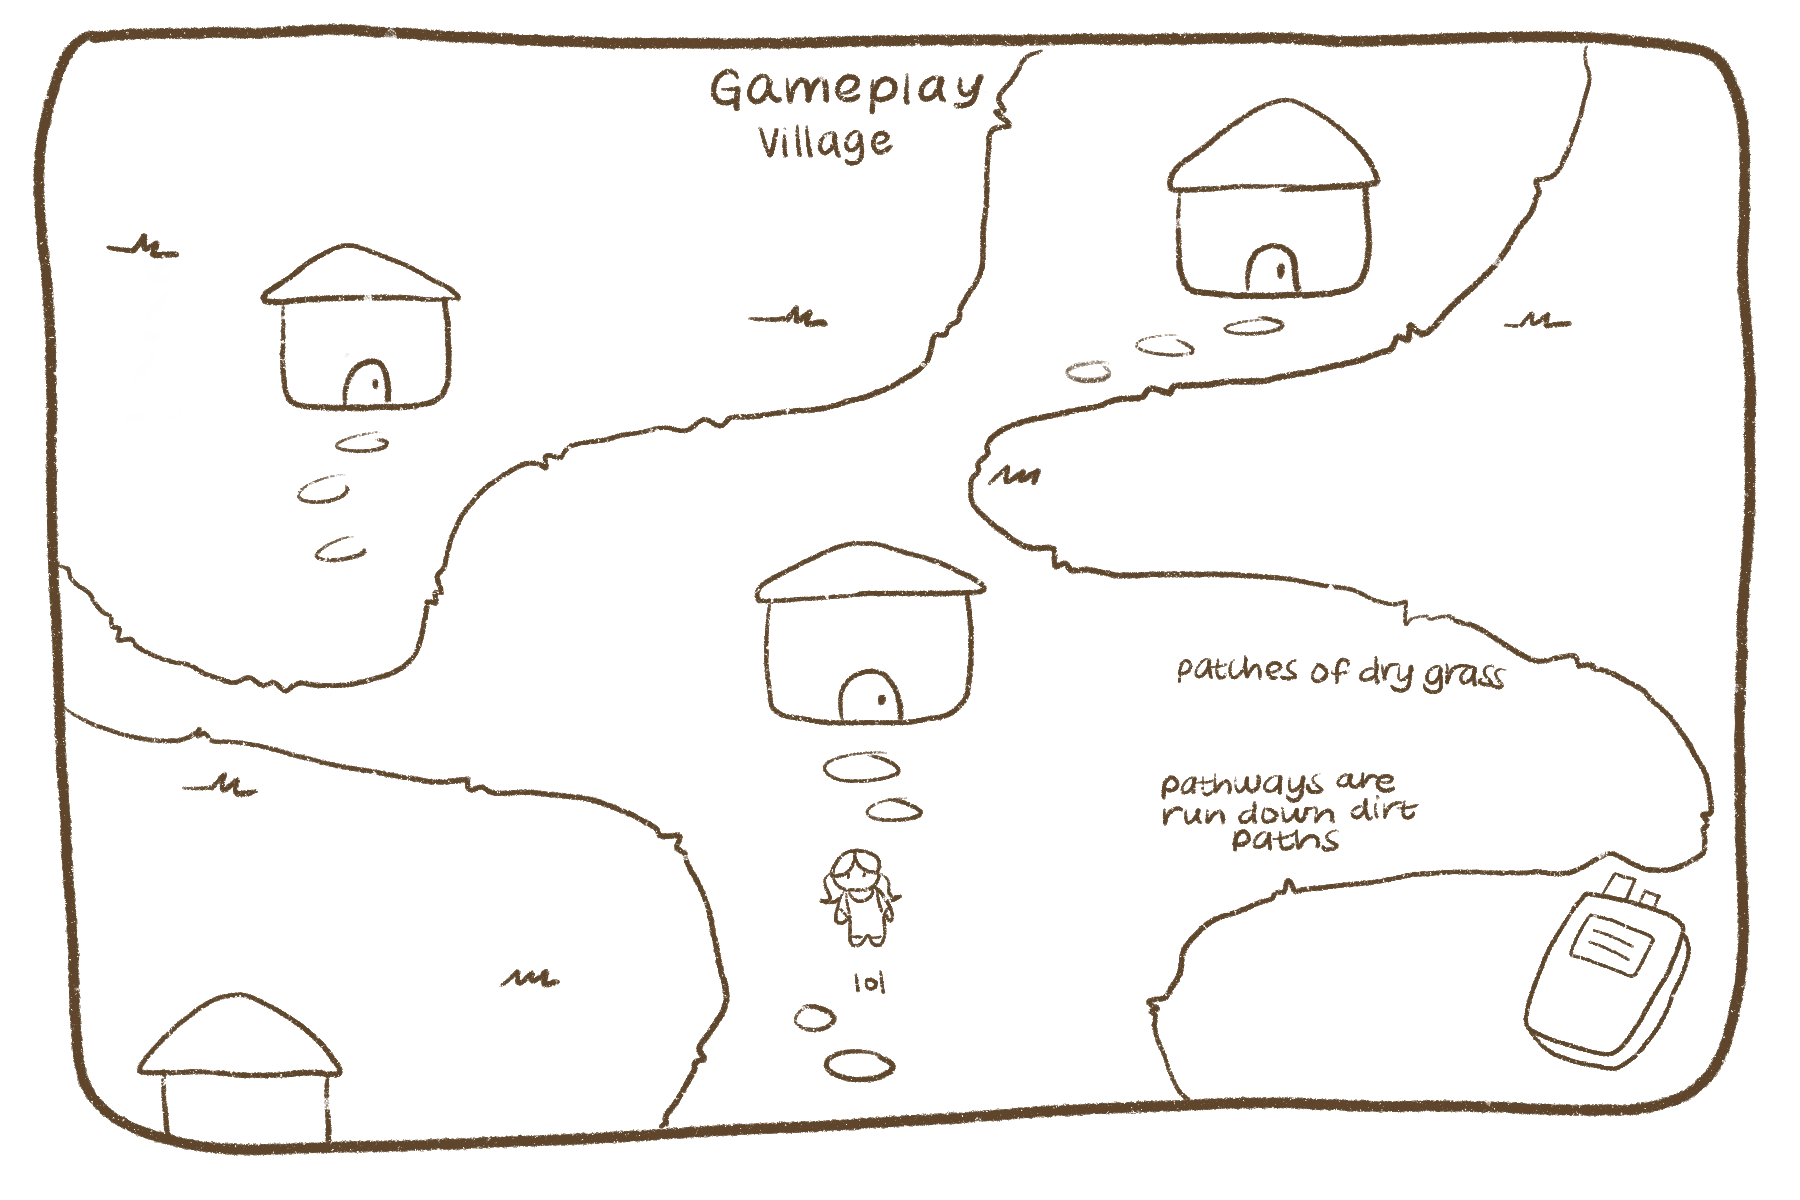 Gameplay
Village
patches of dry grass
pathways are
run down dirt
paths
lol